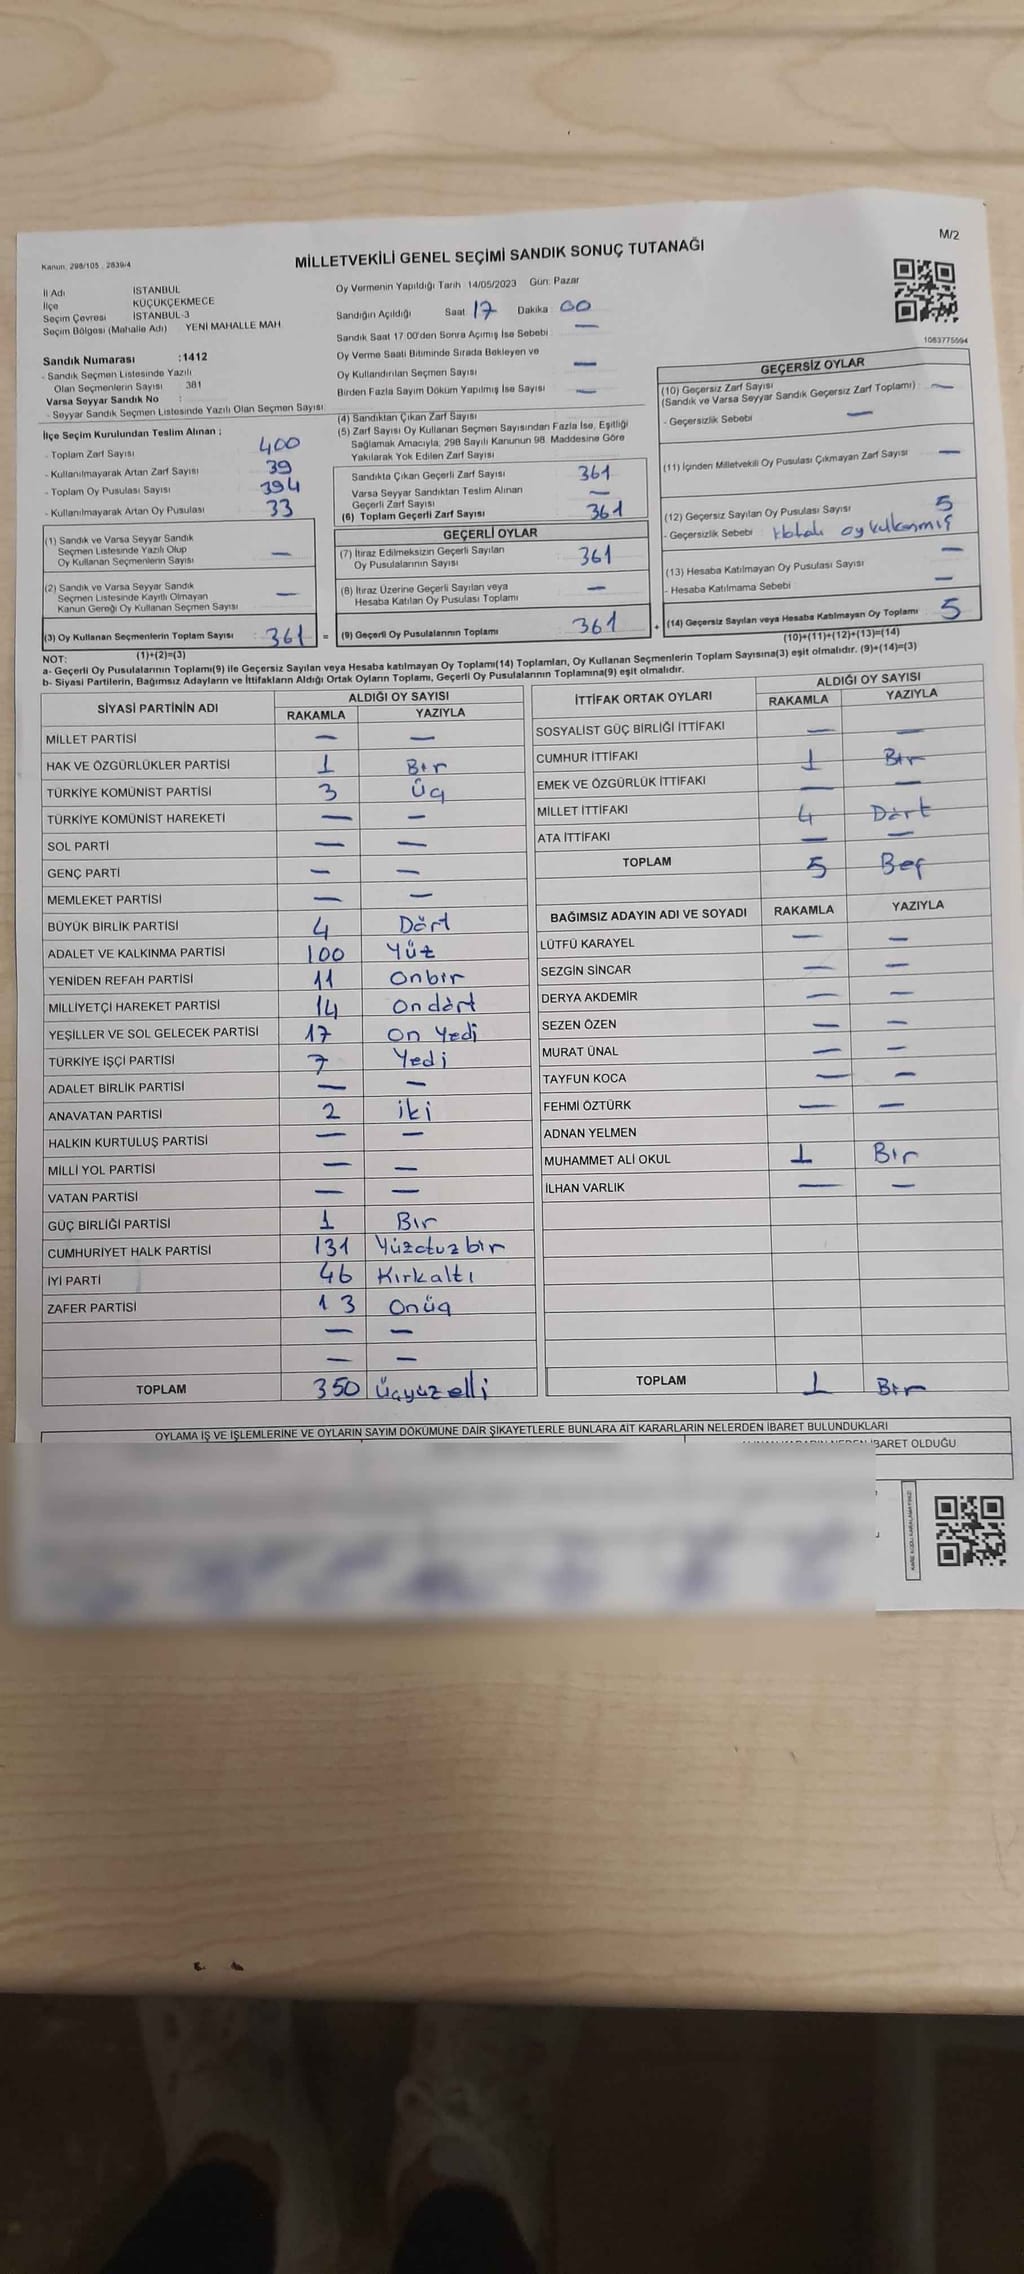 M/2
Kanun: 298/105 , 2839/4
MİLLETVEKİLİ GENEL SEÇİMİ SANDIK SONUÇ TUTANAĞI
İl Adı İSTANBUL
İlçe KÜÇÜKÇEKMECE
Seçim Çevresi İSTANBUL-3
Seçim Bölgesi (Mahalle Adı) YENİ MAHALLE MAH.
Sandık Numarası :1412
- Sandık Seçmen Listesinde Yazılı
Olan Seçmenlerin Sayısı 381
Varsa Seyyar Sandık No :
- Seyyar Sandık Seçmen Listesinde Yazılı Olan Seçmen Sayısı:
İlçe Seçim Kurulundan Teslim Alınan ;
- Toplam Zarf Sayısı 400
- Kullanılmayarak Artan Zarf Sayısı 39
- Toplam Oy Pusulası Sayısı 394
- Kullanılmayarak Artan Oy Pusulası 33
(1) Sandık ve Varsa Seyyar Sandık
Seçmen Listesinde Yazılı Olup
Oy Kullanan Seçmenlerin Sayısı —
(2) Sandık ve Varsa Seyyar Sandık
Seçmen Listesinde Kayıtlı Olmayan
Kanun Gereği Oy Kullanan Seçmen Sayısı —
(3) Oy Kullanan Seçmenlerin Toplam Sayısı 361 =
(1)+(2)=(3)
Oy Vermenin Yapıldığı Tarih 14/05/2023 Gün: Pazar
Sandığın Açıldığı Saat 17 Dakika 00
Sandık Saat 17.00'den Sonra Açılmış İse Sebebi : —
Oy Verme Saati Bitiminde Sırada Bekleyen ve
Oy Kullandırılan Seçmen Sayısı —
Birden Fazla Sayım Döküm Yapılmış İse Sayısı —
(4) Sandıktan Çıkan Zarf Sayısı
(5) Zarf Sayısı Oy Kullanan Seçmen Sayısından Fazla İse, Eşitliği
Sağlamak Amacıyla, 298 Sayılı Kanunun 98. Maddesine Göre
Yakılarak Yok Edilen Zarf Sayısı
Sandıkta Çıkan Geçerli Zarf Sayısı 361
Varsa Seyyar Sandıktan Teslim Alınan
Geçerli Zarf Sayısı —
(6) Toplam Geçerli Zarf Sayısı 361
GEÇERLİ OYLAR
(7) İtiraz Edilmeksizin Geçerli Sayılan
Oy Pusulalarının Sayısı 361
(8) İtiraz Üzerine Geçerli Sayılan veya
Hesaba Katılan Oy Pusulası Toplamı —
(9) Geçerli Oy Pusulalarının Toplamı 361 +
1083775094
GEÇERSİZ OYLAR
(10) Geçersiz Zarf Sayısı
(Sandık ve Varsa Seyyar Sandık Geçersiz Zarf Toplamı) : —
- Geçersizlik Sebebi —
(11) İçinden Milletvekili Oy Pusulası Çıkmayan Zarf Sayısı —
(12) Geçersiz Sayılan Oy Pusulası Sayısı 5
- Geçersizlik Sebebi Hatalı oy kullanmış
(13) Hesaba Katılmayan Oy Pusulası Sayısı —
- Hesaba Katılmama Sebebi —
(14) Geçersiz Sayılan veya Hesaba Katılmayan Oy Toplamı 5
(10)+(11)+(12)+(13)=(14)
NOT:
a- Geçerli Oy Pusulalarının Toplamı(9) ile Geçersiz Sayılan veya Hesaba katılmayan Oy Toplamı(14) Toplamları, Oy Kullanan Seçmenlerin Toplam Sayısına(3) eşit olmalıdır. (9)+(14)=(3)
b- Siyasi Partilerin, Bağımsız Adayların ve İttifakların Aldığı Ortak Oyların Toplamı, Geçerli Oy Pusulalarının Toplamına(9) eşit olmalıdır.
SİYASİ PARTİNİN ADI ALDIĞI OY SAYISI
RAKAMLA YAZIYLA
MİLLET PARTİSİ — —
HAK VE ÖZGÜRLÜKLER PARTİSİ 1 Bir
TÜRKİYE KOMÜNİST PARTİSİ 3 Üç
TÜRKİYE KOMÜNİST HAREKETİ — —
SOL PARTİ — —
GENÇ PARTİ — —
MEMLEKET PARTİSİ — —
BÜYÜK BİRLİK PARTİSİ 4 Dört
ADALET VE KALKINMA PARTİSİ 100 Yüz
YENİDEN REFAH PARTİSİ 11 Onbir
MİLLİYETÇİ HAREKET PARTİSİ 14 Ondört
YEŞİLLER VE SOL GELECEK PARTİSİ 17 On Yedi
TÜRKİYE İŞÇİ PARTİSİ 7 Yedi
ADALET BİRLİK PARTİSİ — —
ANAVATAN PARTİSİ 2 iki
HALKIN KURTULUŞ PARTİSİ — —
MİLLİ YOL PARTİSİ — —
VATAN PARTİSİ — —
GÜÇ BİRLİĞİ PARTİSİ 1 Bir
CUMHURİYET HALK PARTİSİ 131 Yüzotuzbir
İYİ PARTİ 46 Kırkaltı
ZAFER PARTİSİ 13 Onüç
— —
— —
TOPLAM 350 Üçyüzelli
İTTİFAK ORTAK OYLARI ALDIĞI OY SAYISI
RAKAMLA YAZIYLA
SOSYALİST GÜÇ BİRLİĞİ İTTİFAKI — —
CUMHUR İTTİFAKI 1 Bir
EMEK VE ÖZGÜRLÜK İTTİFAKI — —
MİLLET İTTİFAKI 4 Dört
ATA İTTİFAKI — —
TOPLAM 5 Beş
BAĞIMSIZ ADAYIN ADI VE SOYADI RAKAMLA YAZIYLA
LÜTFÜ KARAYEL — —
SEZGİN SİNCAR — —
DERYA AKDEMİR — —
SEZEN ÖZEN — —
MURAT ÜNAL — —
TAYFUN KOCA — —
FEHMİ ÖZTÜRK — —
ADNAN YELMEN
MUHAMMET ALİ OKUL 1 Bir
İLHAN VARLIK — —
TOPLAM 1 Bir
OYLAMA İŞ VE İŞLEMLERİNE VE OYLARIN SAYIM DÖKÜMÜNE DAİR ŞİKAYETLERLE BUNLARA AİT KARARLARIN NELERDEN İBARET BULUNDUKLARI
İBARET OLDUĞU